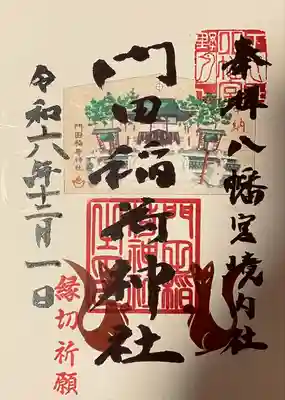 奉拝 八幡宮境内社
門田稲荷神社
令和六年十二月一日
縁切祈願
納
門田稲荷神社